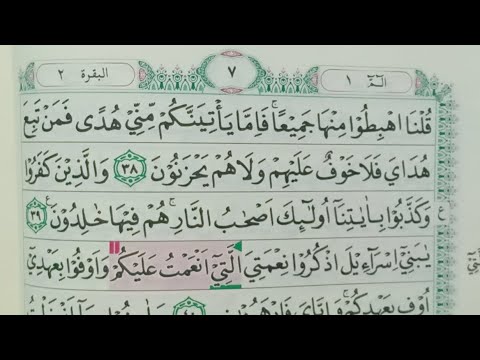 الٓمّٓ ١ ٧ البقرة ٢
قُلْنَا اهْبِطُوْا مِنْهَا جَمِيْعًا ۚ فَاِمَّا يَاْتِيَنَّكُمْ مِّنِّيْ هُدًى فَمَنْ تَبِعَ
هُدَايَ فَلَا خَوْفٌ عَلَيْهِمْ وَلَا هُمْ يَحْزَنُوْنَ ۝٣٨ وَالَّذِيْنَ كَفَرُوْا
وَكَذَّبُوْا بِاٰيٰتِنَآ اُولٰٓئِكَ اَصْحٰبُ النَّارِ ۚ هُمْ فِيْهَا خٰلِدُوْنَ ۝٣٩ ع
يٰبَنِيْٓ اِسْرَآءِيْلَ اذْكُرُوْا نِعْمَتِيَ الَّتِيْٓ اَنْعَمْتُ عَلَيْكُمْ وَاَوْفُوْا بِعَهْدِيْٓ
اُوْفِ بِعَهْدِكُمْ ۚ وَاِيَّايَ فَارْهَبُوْنِ